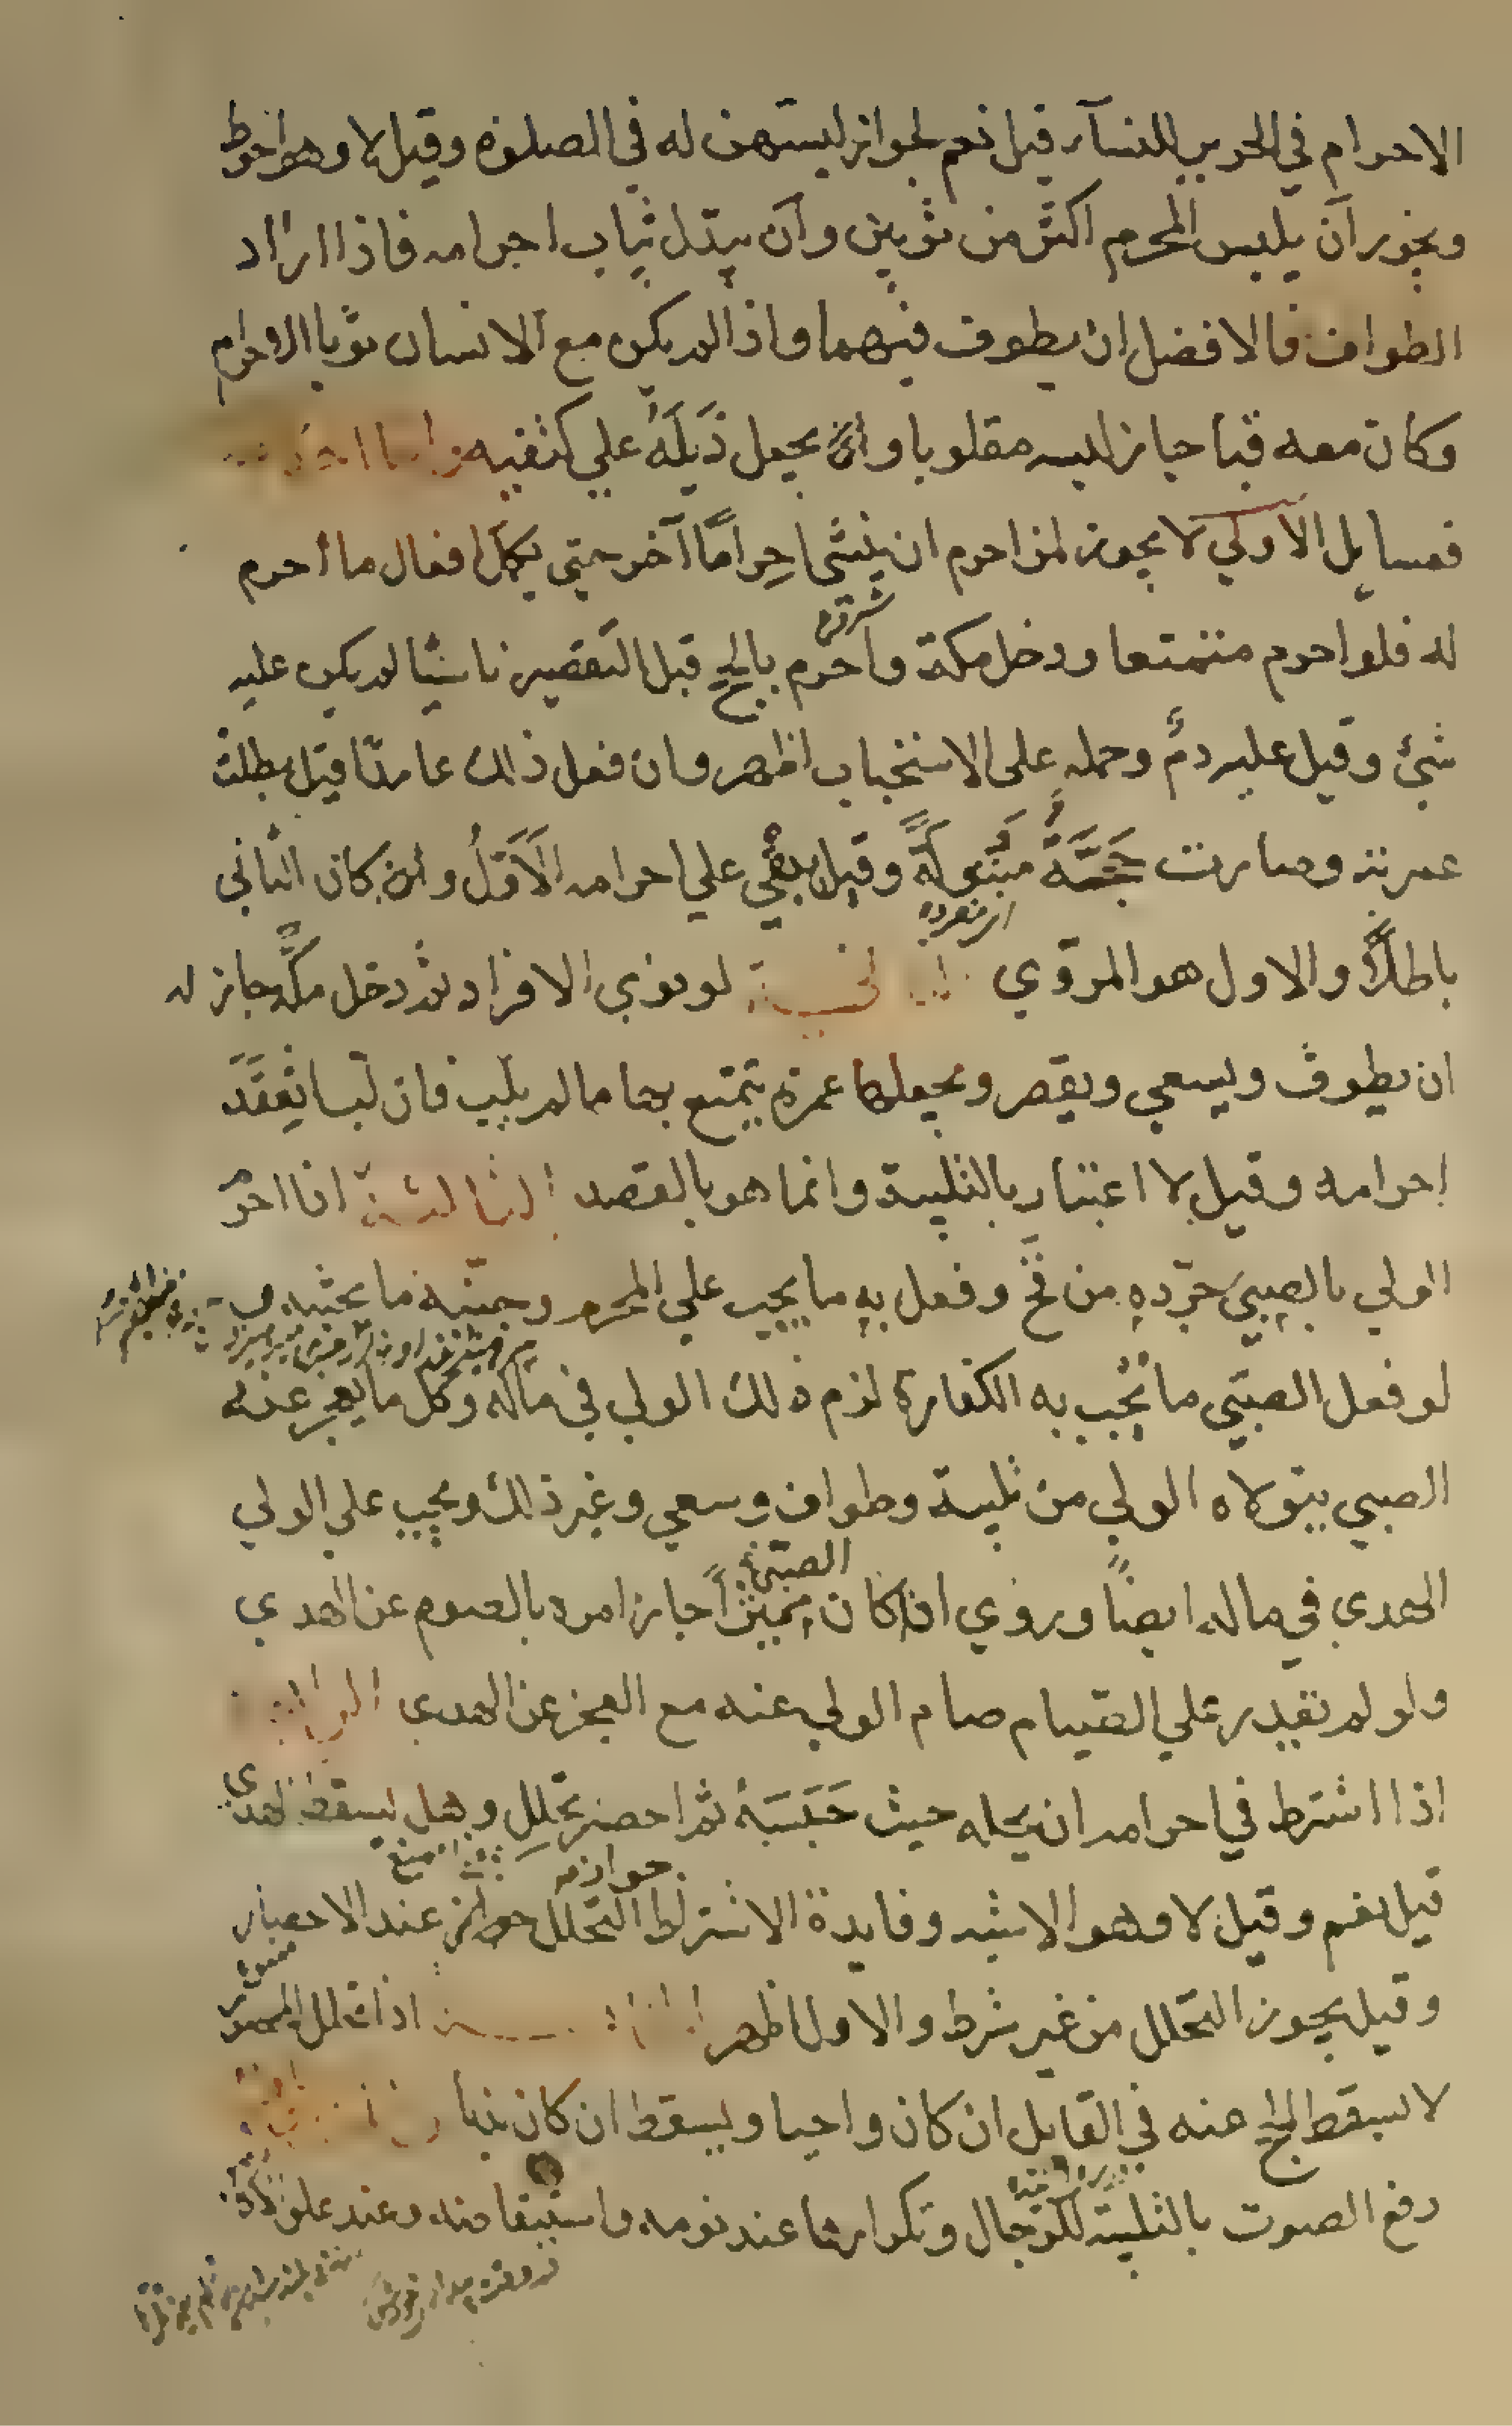 الاحرام في الحرير للنسآء قيل نعم لجوازلبسهن له في الصلوة وقيل لا وهو احوط
ويجوز آن يلبس المحرم اكثر من ثوبين وآن يبدل ثياب احرامه فاذا اراد
الطواف فالافضل ان يطوف فيهما واذا لم يكن مع الانسان ثوبا الاحرام
وكان معه قبا جاز لبسه مقلوبا وان يجعل ذَيلَهُ علي كتفيه
فمسايل الآولي لا يجوز لمن احرم ان ينشي احِرامًا آخر حتي يكمل افعال ما احرم
له فلو احرم متمتعا ودخل مكة واحرم بالحج قبل التقصير ناسيًا لم يكن عليه
شئ وقيل عليه دمٌ وحمله على الاستحباب اظهر وان فعل ذلك عامدًا قيل بطلت
عمرته وصارت حَجَّةً مبتولَةً وقيل يبقي علي احرامه الَاَوّلُ وان كان الثاني
باطلاً والاول هو المروي الثانية لو نوي الافراد ثم دخل مكّة جاز له
ان يطوف ويسعي ويقصر ويجعلها عمرة يتمتع بها ما لم يلبّ فان لبّا انعَقَدَ
احرامه وقيل لا اعتبار بالتلبية وانما هو بالقصد الثالثة اذا احرم
الولي بالصبي جرّده من فَخّ وفعل به ما يجب علي المحرم وجنّبه ما يجتنبه و
لو فعل الصبّي ما تُجب به الكفارة لزم ذلك الولي في ماله وكل ما يعجز عنه
الصبي يتولاه الولي من تلبية وطواف وسعي وغير ذلك ويجب علي الولي
الصبّي
الهدي في ماله ايضًا وروي اذا كان مميزاً جاز امره بالصوم عن الهدي
ولو لم يقدر علي الصّيام صام الولي عنه مع العجز عن الهدي الرابعة
اذا اشترط في احرامه ان يحله حيث حَبَسَهُ ثم احصر تحلل وهل يسقط الهدي
قيل نعم وقيل لا وهو الاشبه وفايدة الاشتراط التحلل جوازه عند الاحصار
وقيل يجوز التحلل من غير شرط والاول اظهر الخامسة اذا تحلل المحصور
لا يسقط الحج عنه في القابل ان كان واجبا ويسقط ان كان ندبا
رفع الصوت بالتلبيّة للرجال وتكرارها عند نومه واستيقاضه وعند علوه